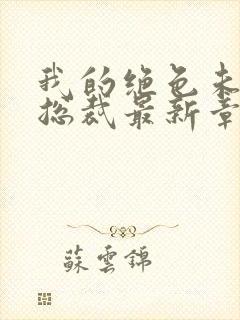 我的绝色未
总裁最新章
蘇雲錦